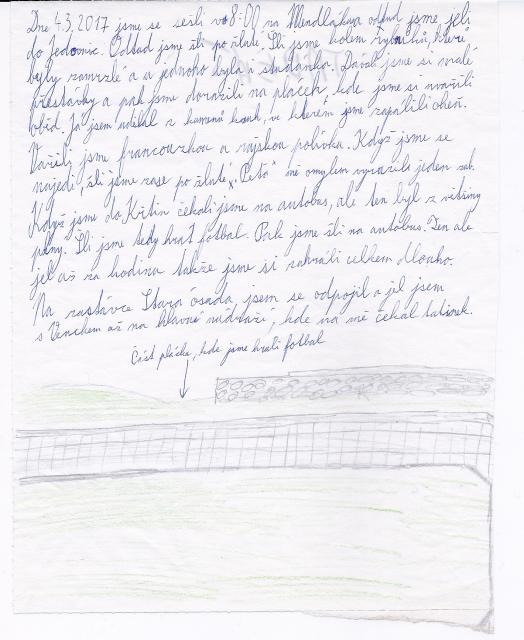 Dne 4.3.2017 jsme se sešli v 8:00 na Mendláku a odtud jsme jeli
do Jedovnic. Odtud jsme šli po žluté. Šli jsme kolem rybníků, které
byly zamrzlé a u jednoho byla i studánka. Davali jsme si malé
přestávky a pak jsme dorazili na plácek, kde jsme si uvařili
oběd. Já jsem udělal z kamenů kruh, ve kterém jsme zapálili oheň.
Vařili jsme francouzkou a rajskou polívku. Když jsme se
najedli, šli jsme zase po žluté. "Peťo" mě omylem vyrazil jeden zub.
Když jsme do Křtin čekali jsme na autobus, ale ten byl z většiny
plný. Šli jsme tedy hrát fotbal. Pak jsme šli na autobus. Ten ale
jel až za hodinu takže jsme si zahráli celkem dlouho.
Na zastávce Stará osada jsem se odpojil a jel jsem
s Venclem až na hlavní nádraží, kde na mě čekal tatínek.
Část plácku, kde jsme hráli fotbal